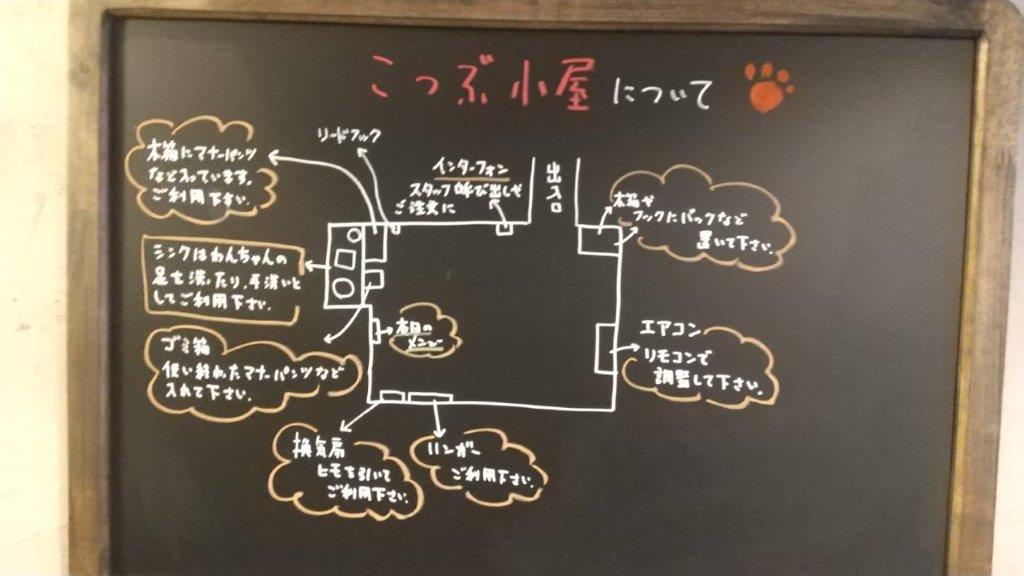 こつぶ小屋について
リードフック
木箱にマナーパンツ
など入っています。
ご利用下さい。
インターフォン
スタッフ呼び出しや
ご注文に
出入口
木箱や
フックにバックなど
置いて下さい。
シンクはわんちゃんの
足を洗ったり、手洗いと
してご利用下さい。
本日の
メニュー
エアコン
リモコンで
調整して下さい。
ゴミ箱
使い終わったマナーパンツなど
入れて下さい。
換気扇
ヒモを引いて
ご利用下さい。
ハンガー
ご利用下さい。